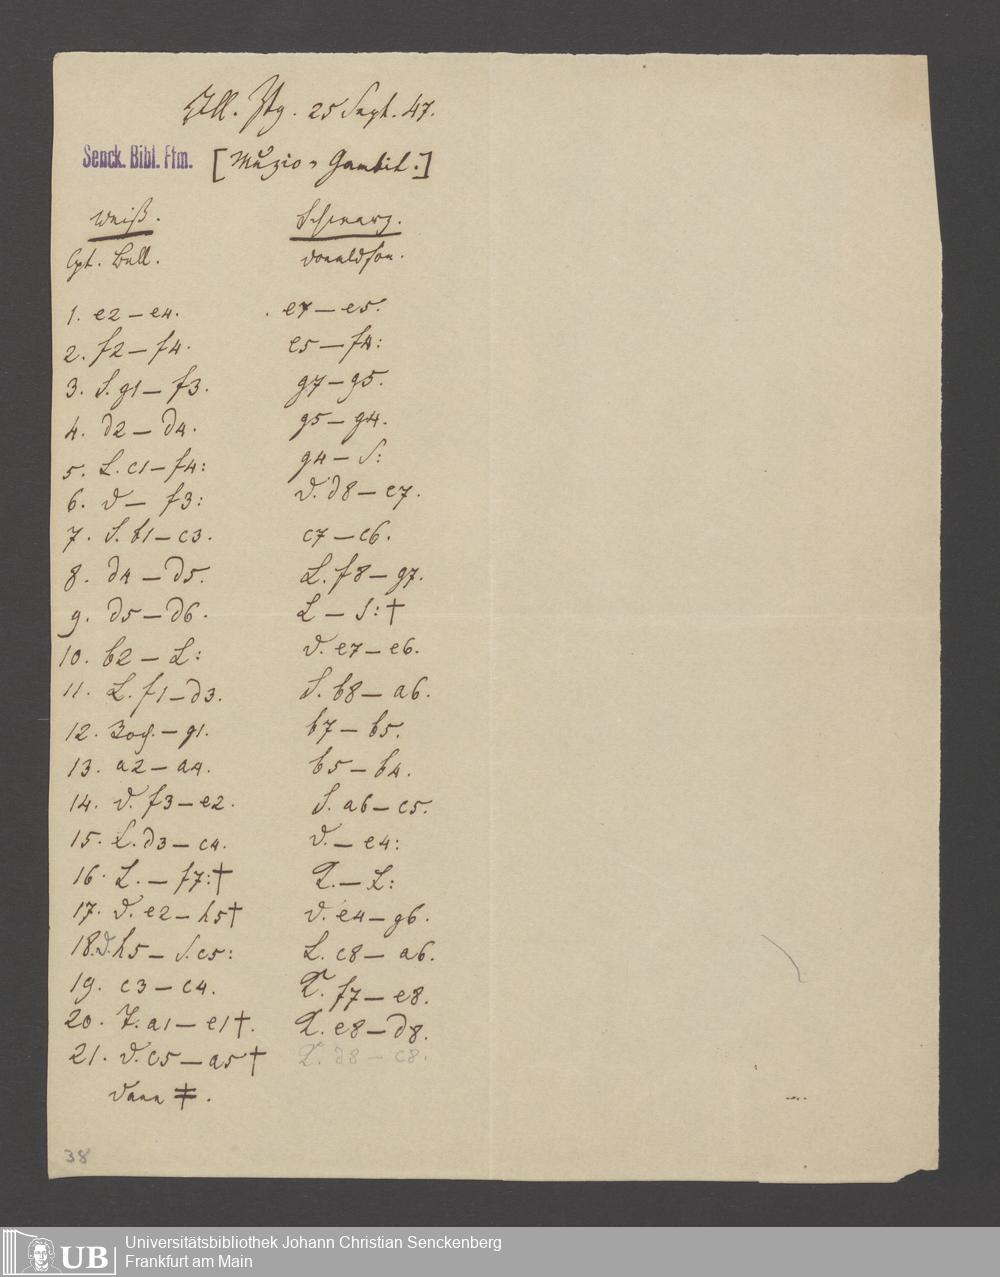 Ill. Ztg. 25 Sept. 47.
Senck. Bibl. Ffm. [Muzio-Gambit.]
Weiß. Schwarz.
Cpt. Bell. Donaldson.
1. e2 — e4. e7 — e5.
2. f2 — f4. e5 — f4:
3. S. g1 — f3. g7 — g5.
4. d2 — d4. g5 — g4.
5. L. c1 — f4: g4 — S:
6. D — f3: D. d8 — e7.
7. S. b1 — c3. c7 — c6.
8. d4 — d5. L. f8 — g7.
9. d5 — d6. L — S: †
10. b2 — L: D. e7 — e6.
11. L. f1 — d3. S. b8 — a6.
12. Roch. — g1. b7 — b5.
13. a2 — a4. b5 — b4.
14. D. f3 — e2. S. a6 — c5.
15. L. d3 — c4. D. — e4:
16. L. — f7: † K. — L:
17. D. e2 — h5 † D. e4 — g6.
18. D. h5 — S. c5: L. c8 — a6.
19. c3 — c4. K. f7 — e8.
20. T. a1 — e1 †. K. e8 — d8.
21. D. c5 — a5 † K. d8 — c8.
Dann ‡.
38
UB Universitätsbibliothek Johann Christian Senckenberg
Frankfurt am Main